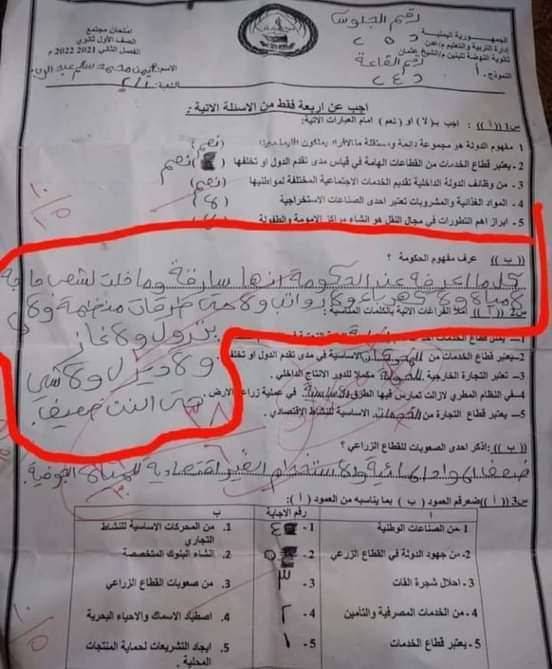 الجمهورية اليمنية
إدارة التربية والتعليم م/عدن
ثانوية النهضة للبنين م/الشيخ عثمان
النموذج: أ
رقم الجلوس
رقم القاعة
امتحان مجتمع
الصف الأول ثانوي
الفصل الثاني 2021 2022م
الاسم: أيمن محمد سالم عبد
الشعبة:
اجب عن اربعة فقط من الاسئلة الاتية :
س1(( أ )) : اجب بـ(لا) او ( نعم ) امام العبارات الاتية:
1 مفهوم الدولة هو مجموعة دائمة ومستقلة مالأفراد يملكون (نعم)
2 - يعتبر قطاع الخدمات من القطاعات الهامة في قياس مدى تقدم الدول او تخلفها (نعم)
3 - من وظائف الدولة الداخلية تقديم الخدمات الاجتماعية المختلفة لمواطنيها (نعم)
4 - المواد الغذائية والمشروبات تعتبر احدى الصناعات الاستخراجية (لا)
5 - ابراز اهم التطورات في مجال النقل هو انشاء مراكز الامومة والطفولة
١٠
١٥
(( ب )) عرف مفهوم الحكومة ؟
كلما اعرفه عن الحكومة انها سارقة وما خلت لشعب حاجة
لا مياة ولا كهرباء ولا رواتب ولا حتى طرقات منضمة ولا
س2(( أ )) املأ الفراغات الاتية بالكلمات المناسبة:
بترول ولا غاز
ولا ديزل ولا شي
حتى النت ضعيف.
2–يعتبر قطاع الخدمات من الاساسية في مدى تقدم الدول او تخلفها
3– تعتبر التجارة الخارجية مكملا لدور الانتاج الداخلي .
4–في النظام المطري لازالت تمارس فيها الطرق في عملية زراعة الارض.
5– يعتبر قطاع التجارة من الاساسية للنشاط الاقتصادي .
(( ب )) :اذكر احدى الصعوبات للقطاع الزراعي ؟
ضعف المواد المائية والاستخدام الغير اقتصادية للمياة الجوفية.
س3(( أ ))ضعرقم العمود ( ب ) بما يناسبه من العمود ( أ ) :
أ رقم الاجابة ب
1 من الصناعات الوطنية 1 - ٤ 1. من المحركات الاساسية للنشاط التجاري
2- من جهود الدولة في القطاع الزرعي 2- ٥ 2. انشاء البنوك المتخصصة
3 - احلال شجرة القات 3 - ٣ 3. من صعوبات القطاع الزراعي
4 - من الخدمات المصرفية والتأمين 4 - ٢ 4. اصطياد الاسماك والاحياء البحرية
5 - يعتبر قطاع الخدمات 5 - ١ 5. ايجاد التشريعات لحماية المنتجات المحلية .
١٠
١٥